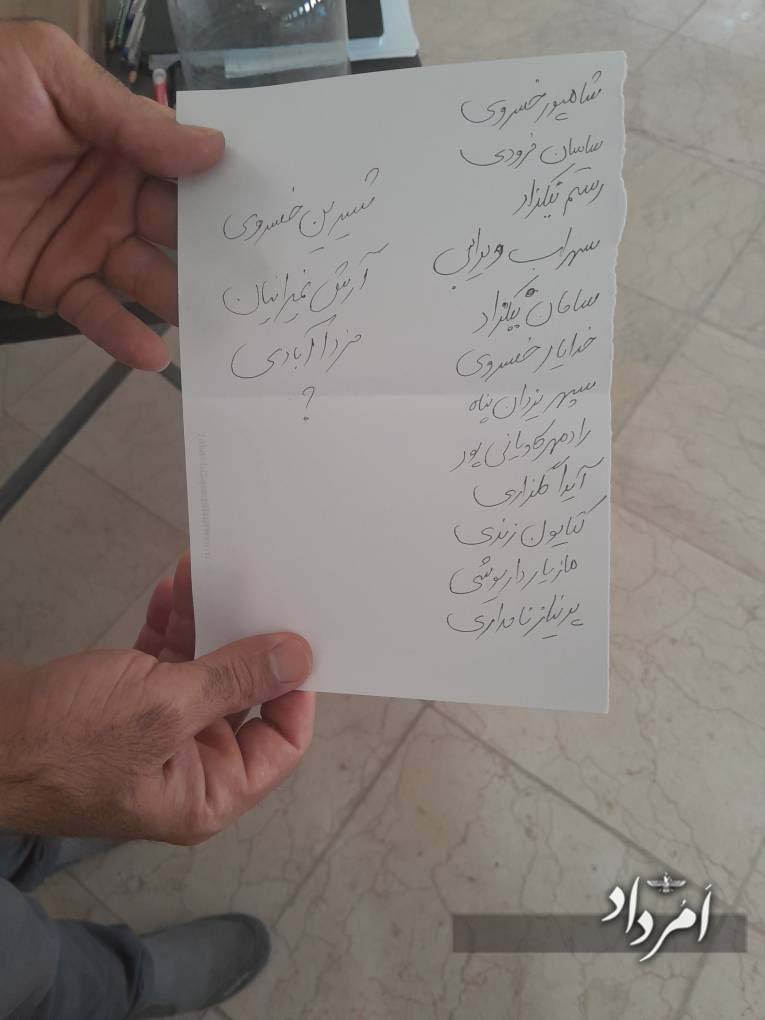 شاهپور خسروی
ساسان فرودی
رستم نیکزاد
سهراب ویرابی
سامان نیکزاد
خدایار خسروی
سپهر یزدان پناه
رادمهر کاویانی پور
آیدا گلذاری
کتایون زندی
مازیار داریوشی
پرنیاز نامداری
شیرین خسروی
آرش نمیرانیان
مزدا آبادی
?
اَمُرداد